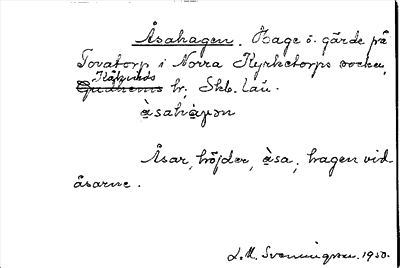 Åsahagen. Hage o. gärde på
Tovatorp i Norra Kyrketorps socken,
Kåkinds
Gudhems hr, Skb. län.
àsahàɡən
Åsar, höjder, àsa, hagen vid
åsarne.
L.M. Svenningson. 1930.